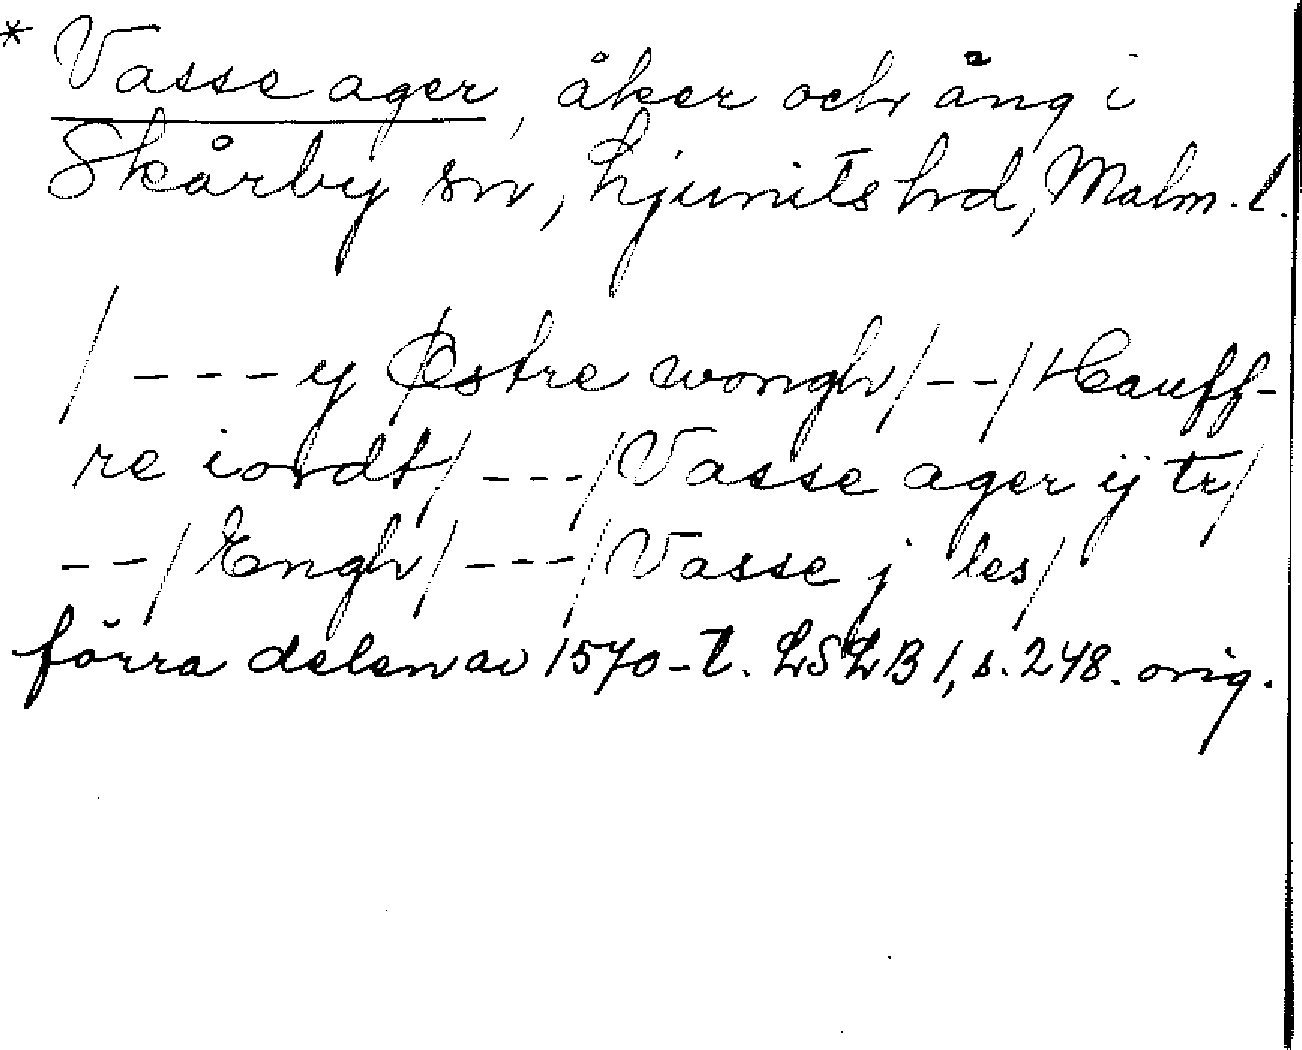 * Vasse ager, åker och äng i
Skårby sn, Ljunits hd, Malm. l.
/ - - - y Østre wongh / - - / Hauff-
re iordt / - - - / Vasse ager ij tr /
- - / Engh / - - - / Vasse j les /
förra delen av 1570-t. LSLB 1, s. 248. orig.